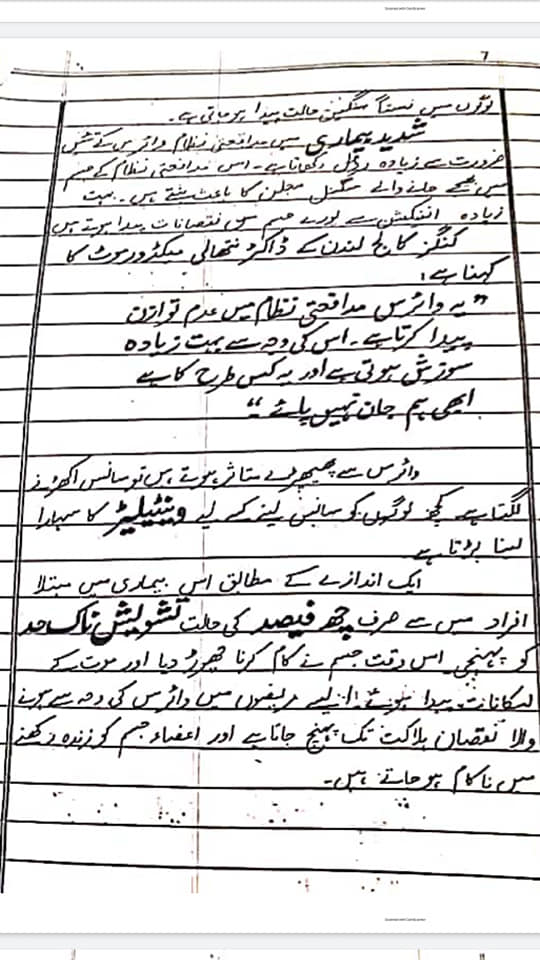 7
لوگوں میں نسبتاً سنگین حالت پیدا ہو جاتی ہے۔
شدید بیماری میں مدافعتی نظام وائرس کے تئیں
ضرورت سے زیادہ ردِعمل دکھاتا ہے۔ اس مدافعتی نظام کے جسم
میں بھیجے جانے والے سگنل سوجن کا باعث بنتے ہیں۔ بہت
زیادہ انفیکشن سے پورے جسم میں نقصانات پیدا ہوتے ہیں
کنگز کالج لندن کے ڈاکٹر نتھالی میکڈورموٹ کا
کہنا ہے:
”یہ وائرس مدافعتی نظام میں عدم توازن
پیدا کرتا ہے۔ اس کی وجہ سے بہت زیادہ
سوزش ہوتی ہے اور یہ کس طرح کا ہے
ابھی ہم جان نہیں پائے“
وائرس سے پھیپھڑے متاثر ہوتے ہیں تو سانس اکھڑنے
لگتا ہے کچھ لوگوں کو سانس لینے کے لیے وینٹیلیٹر کا سہارا
لینا پڑتا ہے
ایک اندازے کے مطابق اس بیماری میں مبتلا
افراد میں سے صرف چھ فیصد کی حالت تشویش ناک حد
کو پہنچی اس وقت جسم نے کام کرنا چھوڑ دیا اور موت کے
امکانات پیدا ہوئے۔ ایسے مریضوں میں وائرس کی وجہ سے ہونے
والا نقصان ہلاکت تک پہنچ جاتا ہے اور اعضاء جسم کو زندہ رکھنے
میں ناکام ہو جاتے ہیں۔